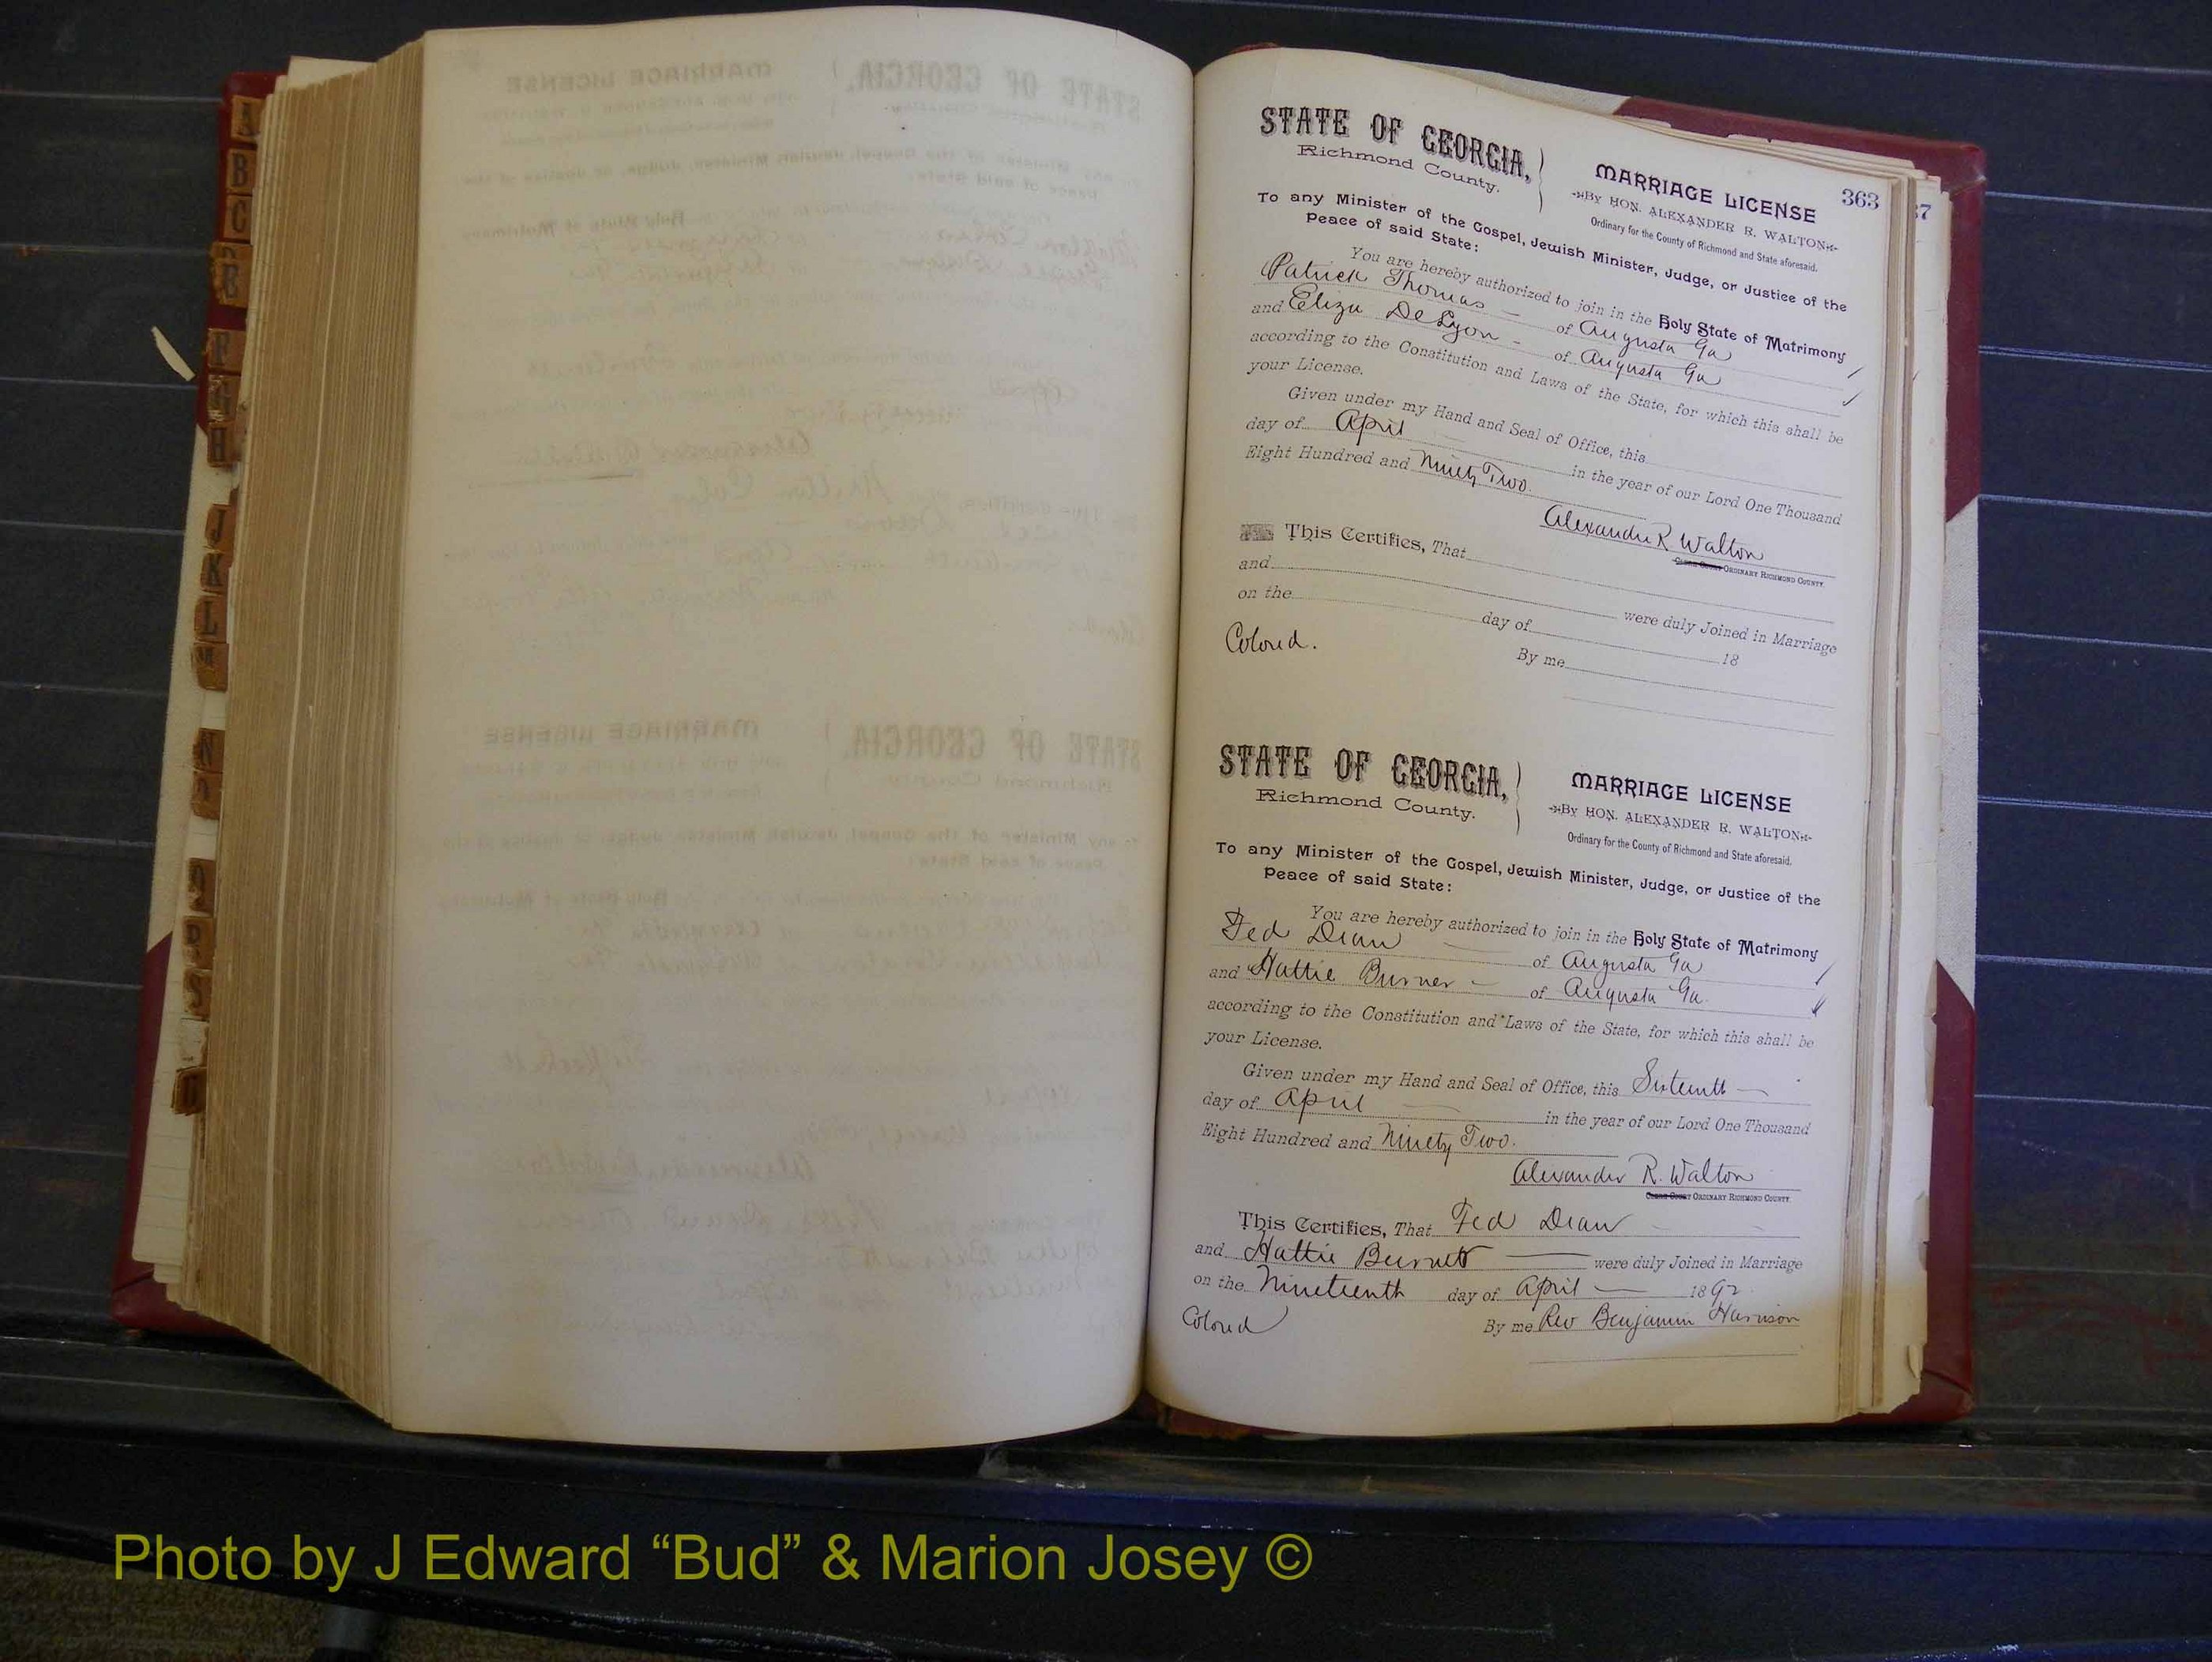 363
STATE OF GEORGIA,
Richmond County.
MARRIAGE LICENSE
By HON. ALEXANDER R. WALTON
Ordinary for the County of Richmond and State aforesaid.
To any Minister of the Gospel, Jewish Minister, Judge, or Justice of the
Peace of said State:
You are hereby authorized to join in the Holy State of Matrimony
Patrick Thomas of Augusta Ga
and Eliza DeLyon of Augusta Ga
according to the Constitution and Laws of the State, for which this shall be
your License.
Given under my Hand and Seal of Office, this
day of April in the year of our Lord One Thousand
Eight Hundred and Ninety Two.
Alexander R Walton
ORDINARY RICHMOND COUNTY.
This Certifies, That
and were duly Joined in Marriage
on the day of 18
Colored. By me
STATE OF GEORGIA,
Richmond County.
MARRIAGE LICENSE
By HON. ALEXANDER R. WALTON
Ordinary for the County of Richmond and State aforesaid.
To any Minister of the Gospel, Jewish Minister, Judge, or Justice of the
Peace of said State:
You are hereby authorized to join in the Holy State of Matrimony
Fed Dean of Augusta Ga
and Hattie Burner of Augusta Ga.
according to the Constitution and Laws of the State, for which this shall be
your License.
Given under my Hand and Seal of Office, this Sixteenth
day of April in the year of our Lord One Thousand
Eight Hundred and Ninety Two.
Alexander R. Walton
ORDINARY RICHMOND COUNTY.
This Certifies, That Fed Dean
and Hattie Burnett were duly Joined in Marriage
on the Nineteenth day of April 1892.
Colored By me Rev Benjamin Harrison
A
B
C
F
G
H
J
K
L
M
N
S
Photo by J Edward “Bud” & Marion Josey ©